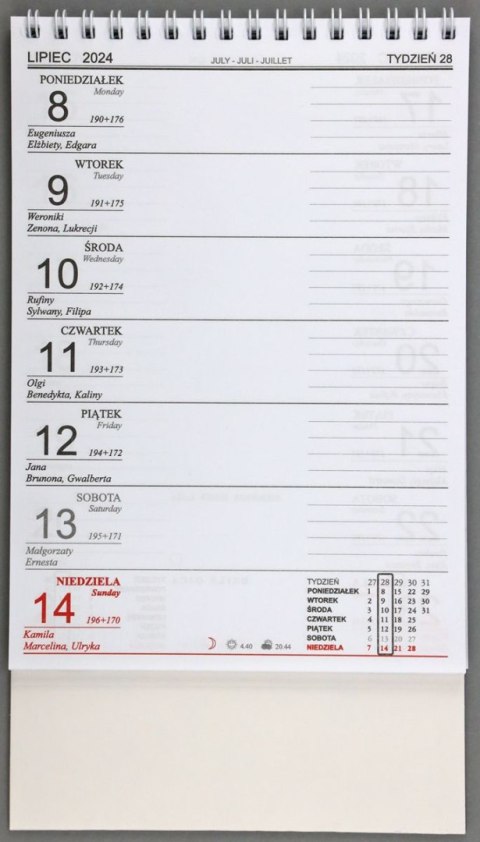 LIPIEC 2024 JULY - JULI - JUILLET TYDZIEŃ 28
PONIEDZIAŁEK
Monday
8
190+176
Eugeniusza
Elżbiety, Edgara
WTOREK
Tuesday
9
191+175
Weroniki
Zenona, Lukrecji
ŚRODA
Wednesday
10
192+174
Rufiny
Sylwany, Filipa
CZWARTEK
Thursday
11
193+173
Olgi
Benedykta, Kaliny
PIĄTEK
Friday
12
194+172
Jana
Brunona, Gwalberta
SOBOTA
Saturday
13
195+171
Małgorzaty
Ernesta
NIEDZIELA
Sunday
14
196+170
Kamila
Marcelina, Ulryka
4.40 20.44
TYDZIEŃ 27 28 29 30 31
PONIEDZIAŁEK 1 8 15 22 29
WTOREK 2 9 16 23 30
ŚRODA 3 10 17 24 31
CZWARTEK 4 11 18 25
PIĄTEK 5 12 19 26
SOBOTA 6 13 20 27
NIEDZIELA 7 14 21 28